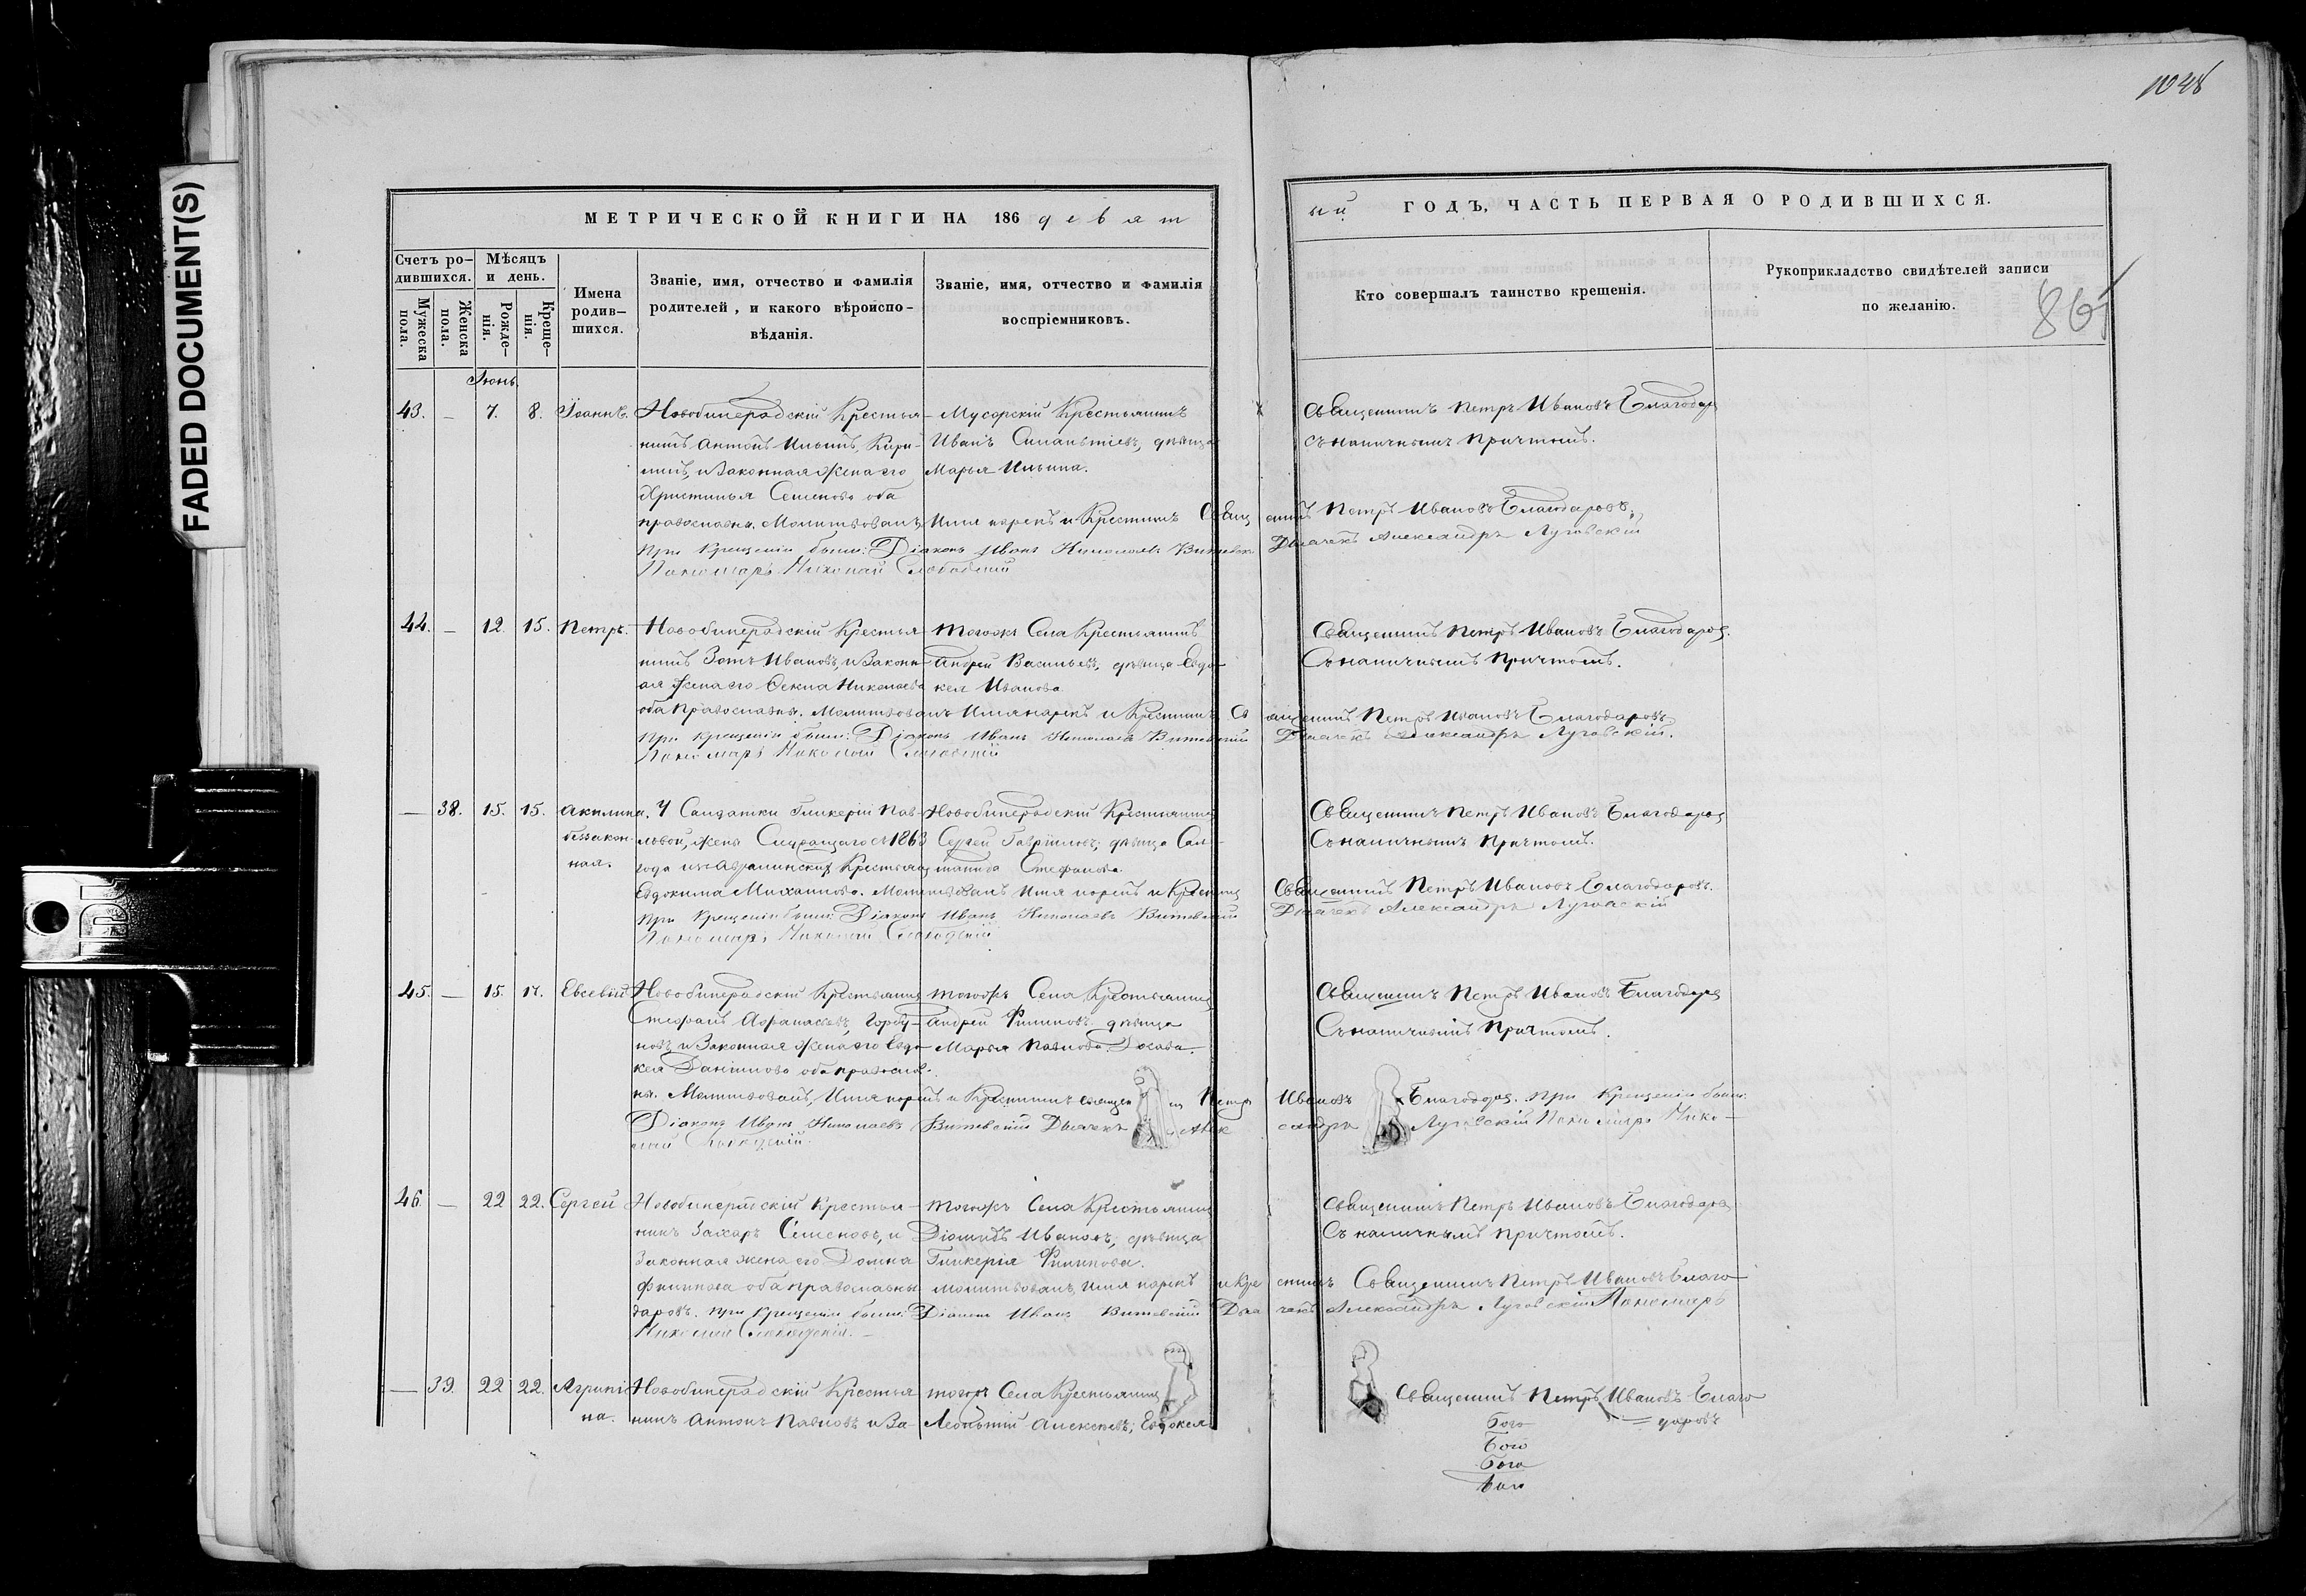 1048
FADED DOCUMENT(S)
МЕТРИЧЕСКОЙ КНИГИ НА 186 девят
ый ГОДЪ, ЧАСТЬ ПЕРВАЯ О РОДИВШИХСЯ.
Счетъ родившихся.
Мужеска пола.
Женска пола.
Мѣсяцъ и день.
Рожденія.
Крещенія.
Имена родившихся.
Званіе, имя, отчество и фамилія родителей, и какого вѣроисповѣданія.
Званіе, имя, отчество и фамилія воспріемниковъ.
Кто совершалъ таинство крещенія.
Рукоприкладство свидѣтелей записи по желанію.
86
Іюнь
43. — 7. 8. Іоаннъ. Новобинерадскій Крестья- Мусорскій Крестьянинъ Священникъ Петръ Ивановъ Благодар
нинъ Антонъ Ильинъ, Иванъ дѣвица Съ наличнымъ причтомъ.
и Законная Жена его Марья Ильина.
Христинья Семенова оба
православны. Молитвовалъ Имя нарекъ и Крестилъ Священникъ Петръ Ивановъ Благодаровъ,
при Крещеніи были: Діаконъ Иванъ Николаевъ Дьячекъ Александръ Луговскій
Пономарь Николай
44. — 12. 15. Петръ. Новобинерадскій Крестья- тогожъ Села Крестьянинъ Священникъ Петръ Ивановъ Благодаров.
нинъ Зотъ Ивановъ, и Законн- Андрей Васильевъ, дѣвица Евдо- Съ наличнымъ причтомъ.
ая Жена его Ѳекла Николаева кея Иванова
оба православны. Молитвовалъ Имя нарекъ и Крестилъ Священникъ Петръ Ивановъ Благодаровъ
при Крещеніи были: Діаконъ Иванъ Николаевъ Витевскій Дьячекъ Александръ Луговскій.
Пономарь Николай
— 38. 15. 15. Акилина. У Салдатки Гликеріи Пав- Новобинерадскій Крестьянинъ Священникъ Петръ Ивановъ Благодаров
беззакон- ловой, жены Служащаго съ 1863 Сергей Гавриловъ; дѣвица Сал- Съ наличнымъ причтомъ.
ная. года изъ Крестьянъ Стефанова.
Евдокима Михайлова. Молитвовалъ Имя нарекъ и Крестилъ Священникъ Петръ Ивановъ Благодаровъ.
при Крещеніи были: Діаконъ Иванъ Николаевъ Витевскій Дьячекъ Александръ Луговскій
Пономарь Николай
45. — 15. 17. Евсевій Новобинерадскій Крестьянинъ тогожъ Села Крестьянинъ Священникъ Петръ Ивановъ Благодаров
Стефанъ Афанасьевъ, Горбу- Андрей Филиповъ, дѣвица Съ наличнымъ причтомъ.
новъ, и Законная Жена его Евдо- Марья Павлова
кея Данилова оба православ-
ны. Молитвовалъ, Имя нарекъ и Крестилъ Священ Петръ Ивановъ Благодаров. при Крещеніи были:
Діаконъ Иванъ Николаевъ Витевскій Дьячекъ Александръ Луговскій Пономарь Нико-
лай
46. — 22 22. Сергей Новобинерадскій Крестья- тогожъ Села Крестьянинъ Священникъ Петръ Ивановъ Благодаров
нинъ Захаръ Семеновъ, и Діомидъ Ивановъ, дѣвица Съ наличнымъ причтомъ.
Законная жена его Домна Гликерія Филипова.
Филипова оба православны Молитвовалъ, имя нарекъ и Крестилъ Священникъ Петръ Ивановъ Благо-
даровъ. при Крещеніи были: Діаконъ Иванъ Витевскій Дьячекъ Александръ Луговскій Пономарь
Николай
— 39. 22 22. Агрипи- Новобинерадскій Крестья- тогожъ Села Крестьянинъ Священникъ Петръ Ивановъ Благо
на. нинъ Антонъ Павловъ и За- Леонтій Алексѣевъ; Евдокея даровъ
Бого
Бого
Бого